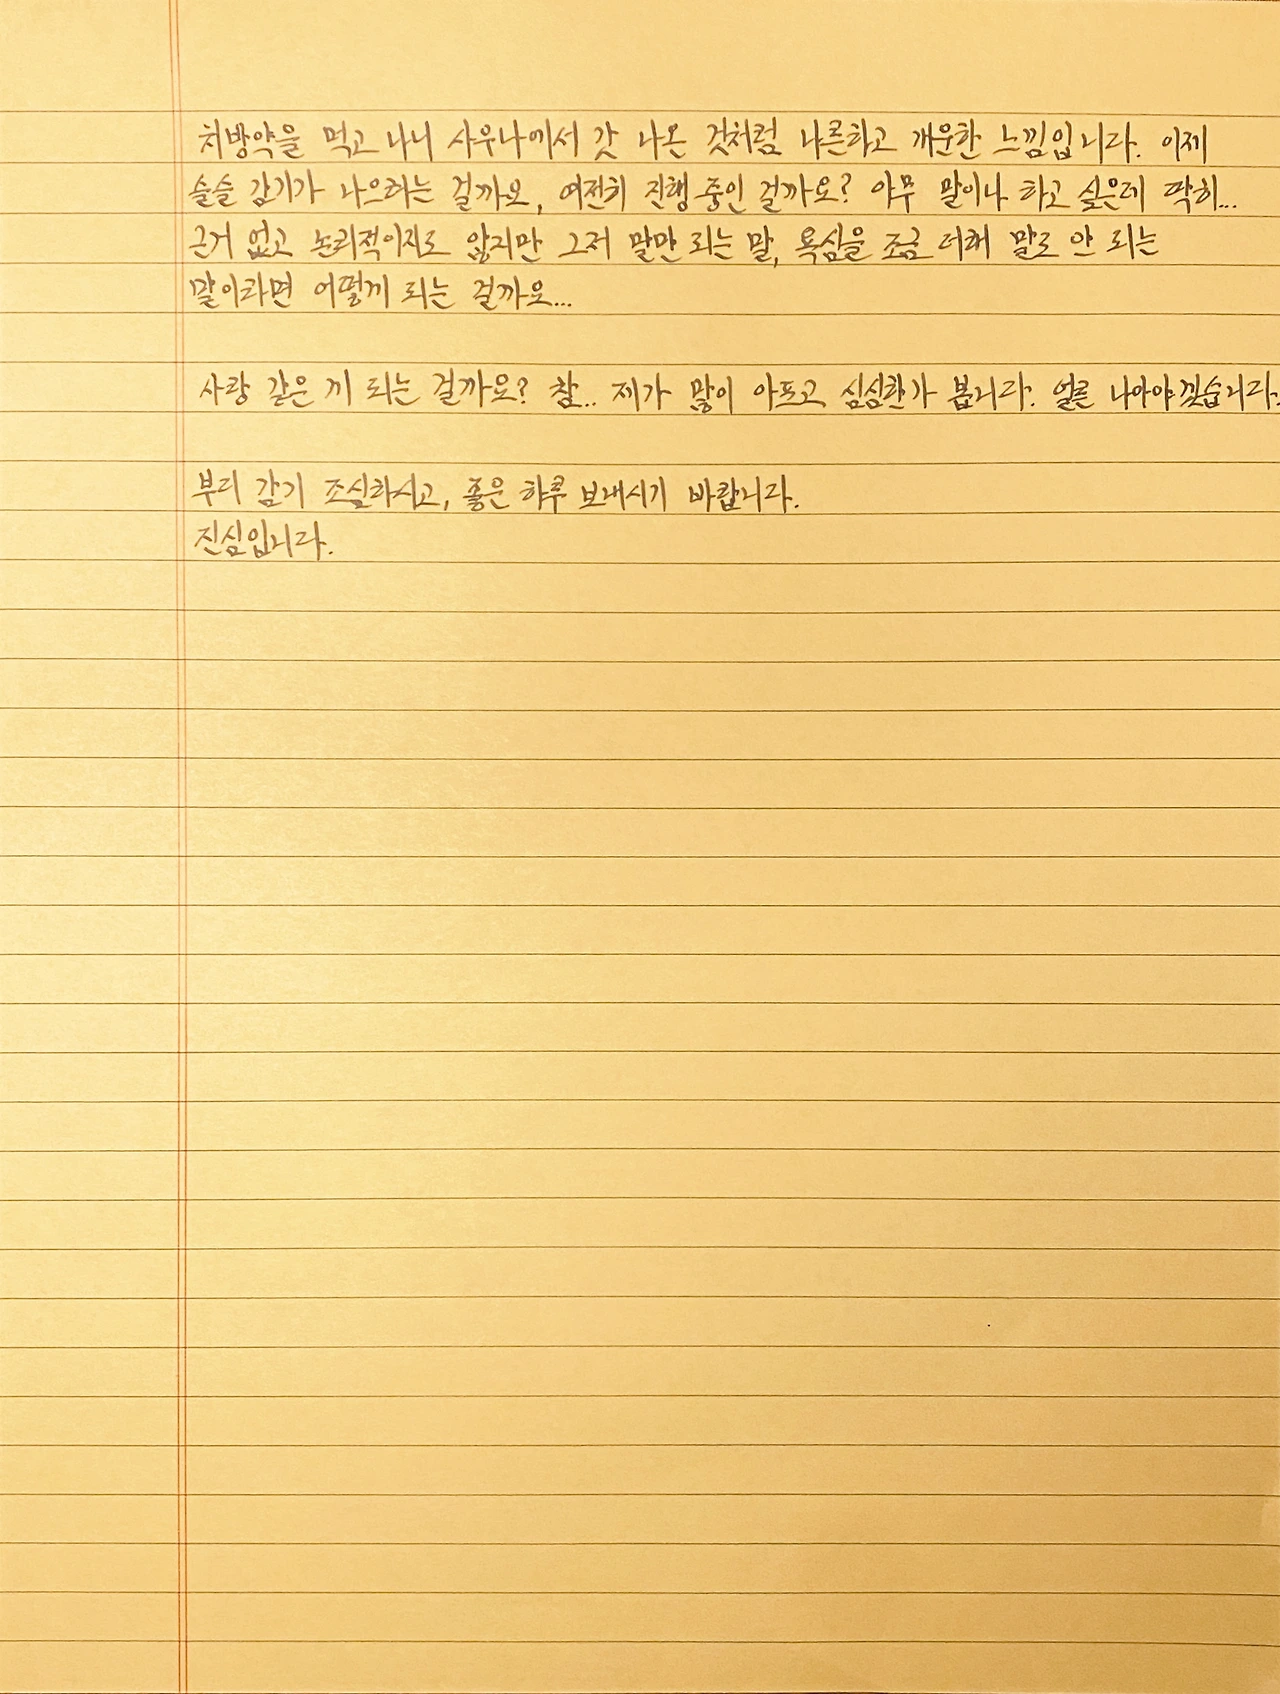 처방약을 먹고 나니 사우나에서 갓 나온 것처럼 나른하고 개운한 느낌입니다. 이제
슬슬 감기가 나으려는 걸까요, 여전히 진행 중인 걸까요? 아무 말이나 하고 싶은데 딱히...
근거 없고 논리적이지도 않지만 그저 말만 되는 말, 욕심을 조금 더해 말로 안 되는
말이라면 어떻게 되는 걸까요...
사랑 같은 게 되는 걸까요? 참.. 제가 많이 아프고 심심한가 봅니다. 얼른 나아야겠습니다.
부디 감기 조심하시고, 좋은 하루 보내시기 바랍니다.
진심입니다.